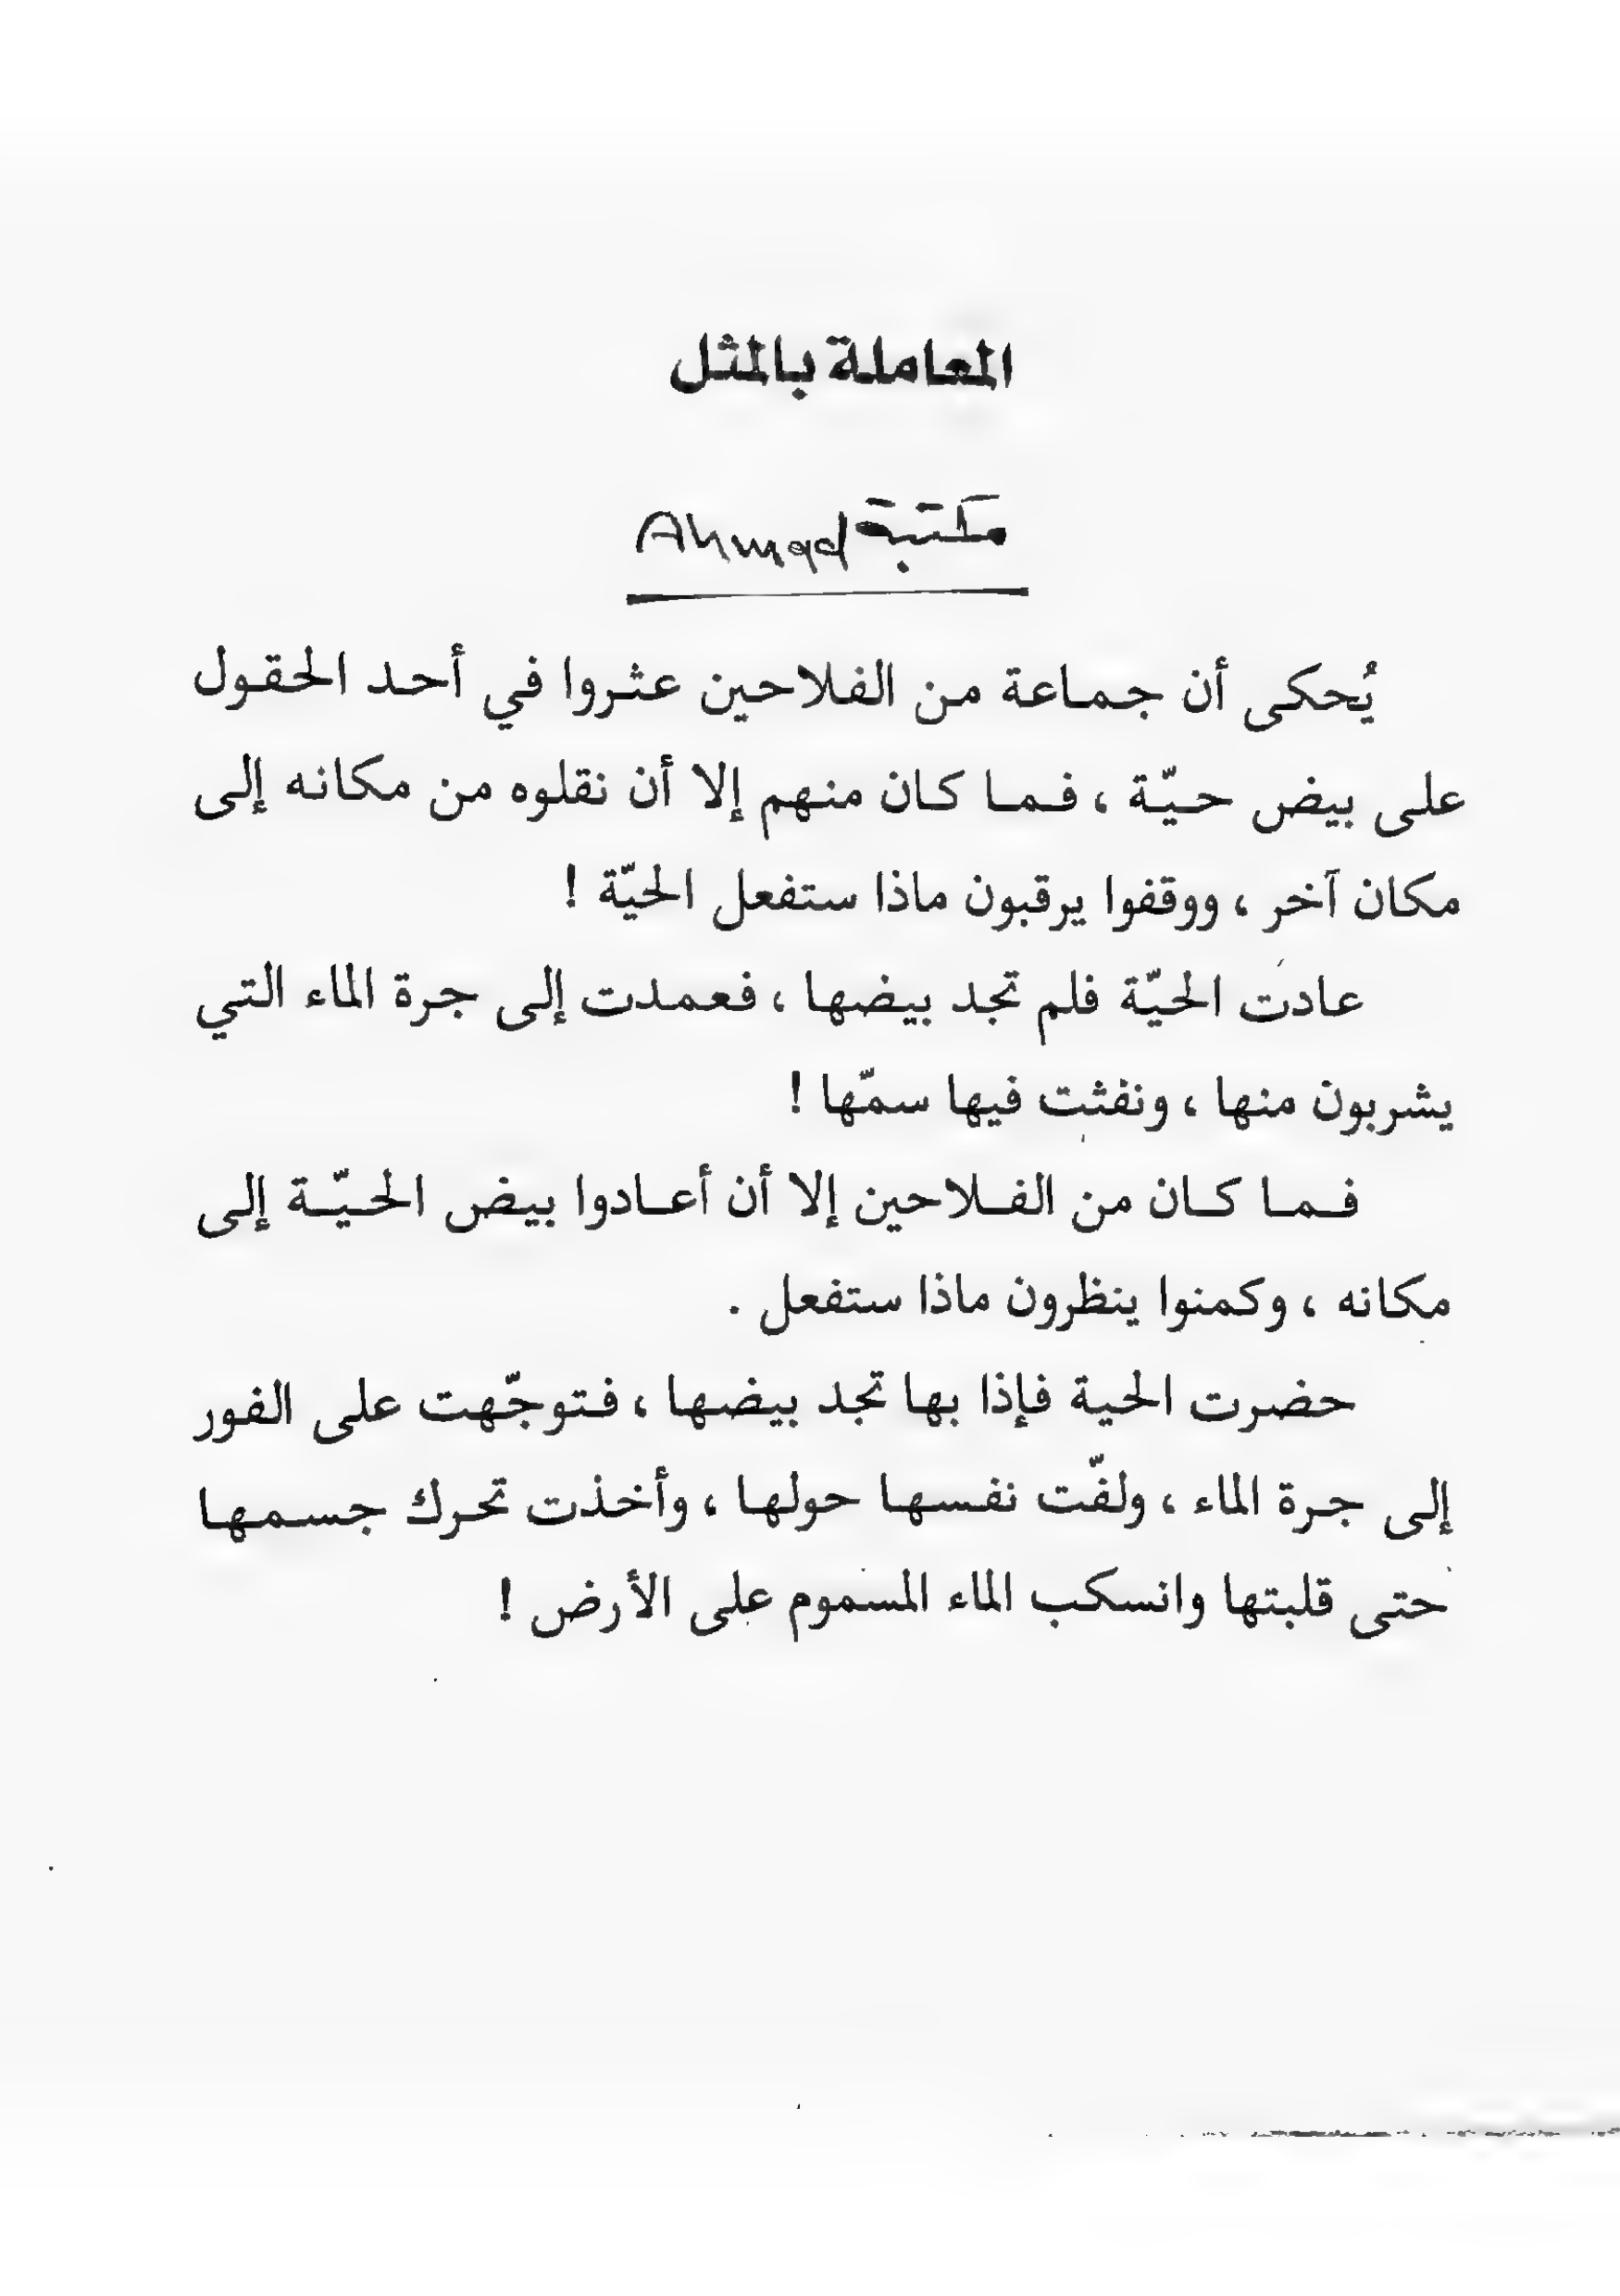 المعاملة بالمثل
مكتبة Ahmad
يُحكى أن جماعة من الفلاحين عثروا في أحد الحقول
على بيض حيّة ، فما كان منهم إلا أن نقلوه من مكانه إلى
مكان آخر ، ووقفوا يرقبون ماذا ستفعل الحيّة !
عادت الحيّة فلم تجد بيضها ، فعمدت إلى جرة الماء التي
يشربون منها ، ونفثت فيها سمّها !
فما كان من الفلاحين إلا أن أعادوا بيض الحيّة إلى
مكانه ، وكمنوا ينظرون ماذا ستفعل .
حضرت الحية فإذا بها تجد بيضها ، فتوجّهت على الفور
إلى جرة الماء ، ولفّت نفسها حولها ، وأخذت تحرك جسمها
حتى قلبتها وانسكب الماء المسموم على الأرض !